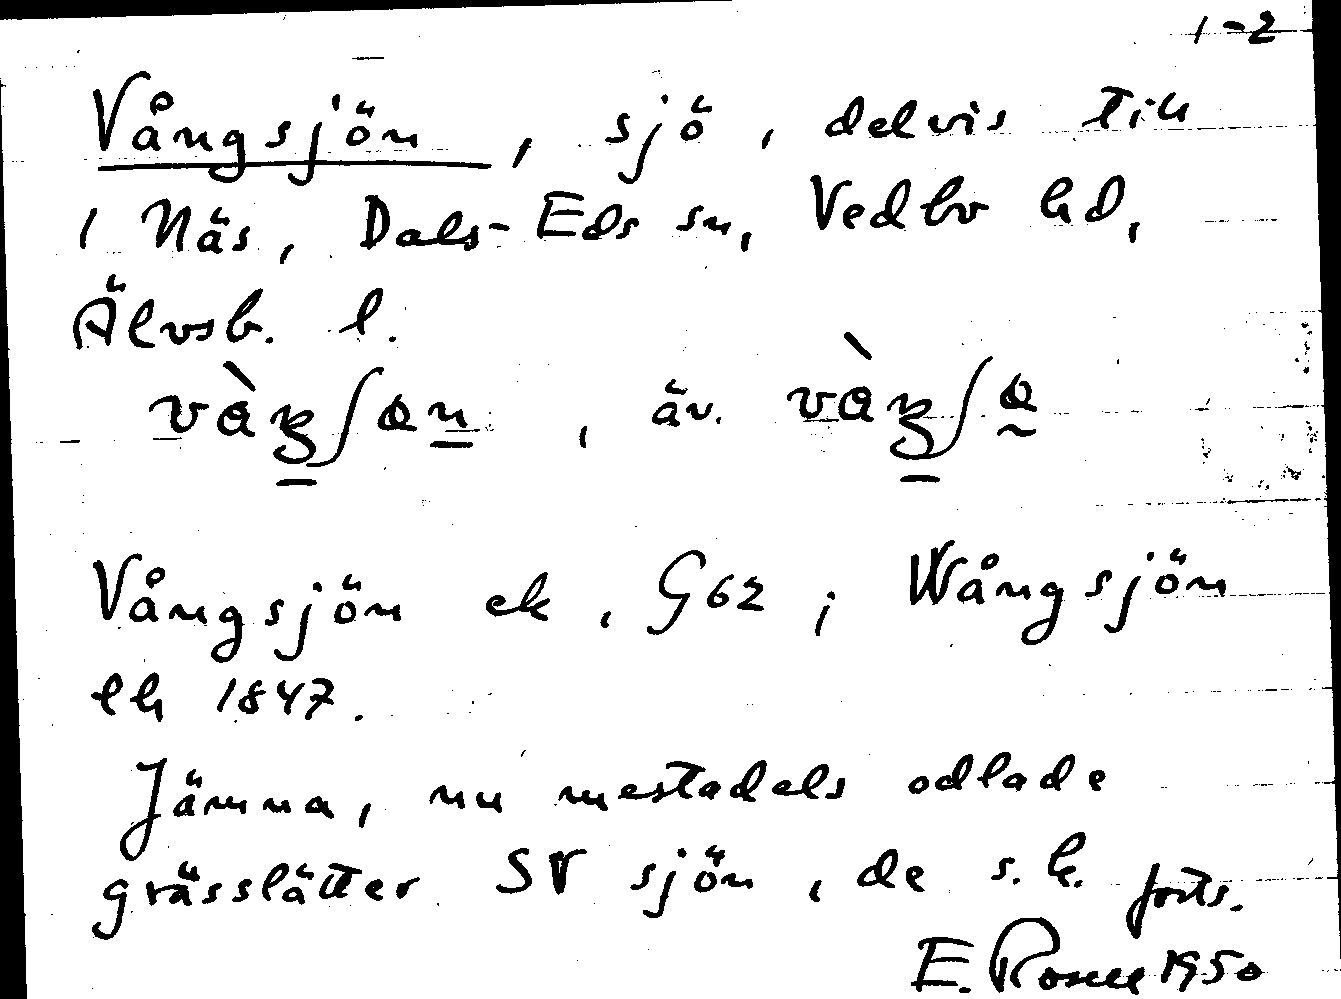 1-2
Vångsjön, sjö, delvis till
1 Näs, Dals-Eds sn, Vedbo hd,
Älvsb. l.
, äv.
Vångsjön ek, G62; Wångsjön
lh 1847.
Jämna, nu mestadels odlade
grässlätter SV sjön, de s.k. forts.
E. 1950